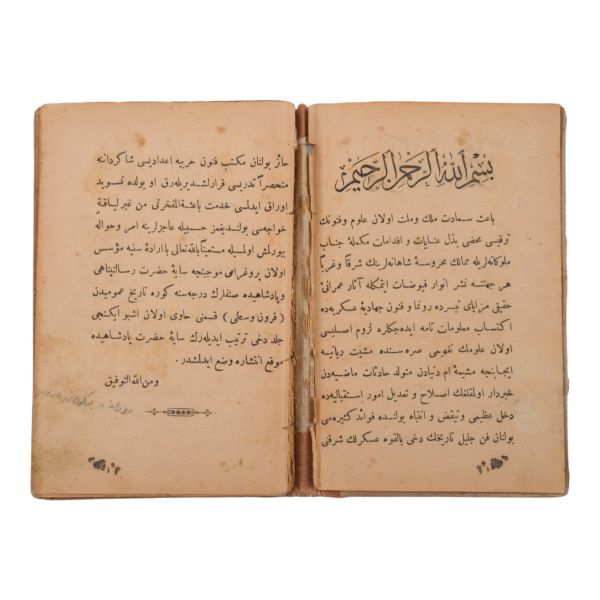 بسم الله الرحمن الرحيم
باعث سعادت ملك وملت اولان علوم وفنونك
ترقيسی محضی بذل عنايات و اقدامات مكمله‌ٔ جناب
ملوكانه‌لريله ممالك محروسهٔ شاهانه‌لرينك شرقاً وغرباً
هر جهتنه نشر انوار فيوضات ايتمكله آثار عمرانی‌ٔ
حقيق مزايای تيسرده رونما و فنون جهاديهٔ عسكريه‌ده
اكتساب معلومات تامه ايده‌جكلره لزوم اصليسی
اولان علومك تفهمی صره سنده مشيت ربانيه
ايجابنجه مشيمهٔ ام دنيادن متولد حادثات ماضيه‌دن
خبردار اولمقلغك اصلاح و تعديل امور استقباليه‌ده
دخل عظيمی وتيقض و انتباه يولنده فوائد كثيره‌سی
بولنان فن جليل تاريخك دخی بالقوه عسكرلك شرفنی
حائز بولنان مكتب فنون حربيه اعداديسی شاكرداننه
منحصراً تدريسی قرارلشديريله‌رق او يولده تسويد
اوراق ايدلمسی خدمت باعثة‌المفخرتی من غير لياقة
خواجه‌سی بولنديغمز حسبيله عاجزلرينه امر وحواله
بيورلمش اولمسيله مستعيناً بالله تعالی با ارادهٔ سنيه مؤسس
اولان پروغرامی موجبنجه سايهٔ حضرت رسالتپناهی
وپادشاهيده صنفلرك درجه‌سنه كوره تاريخ عموميدن
( قرون وسطی ) قسمنی حاوی اولان اشبو ايكنجی
جلد دخی ترتيب ايديله‌رك سايهٔ حضرت پادشاهيده
موقع انتشاره وضع ايدلمشدر .
ومن الله التوفيق